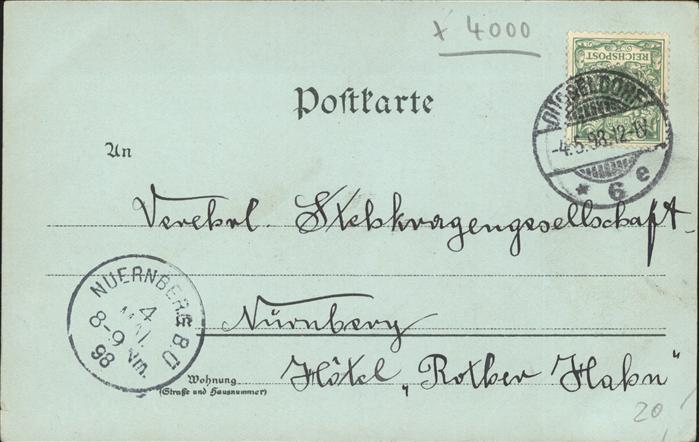 x 4000
REICHSPOST
Postkarte
DÜSSELDORF
-4.5.98.12-
* 6 e
An
Verehrl. Stehkragengesellschaft
NUERNBERG B.U.
4
MAI.
8-9 Nm.
98
Nürnberg
Hôtel „Rother Hahn"
Wohnung
(Straße und Hausnummer)
20